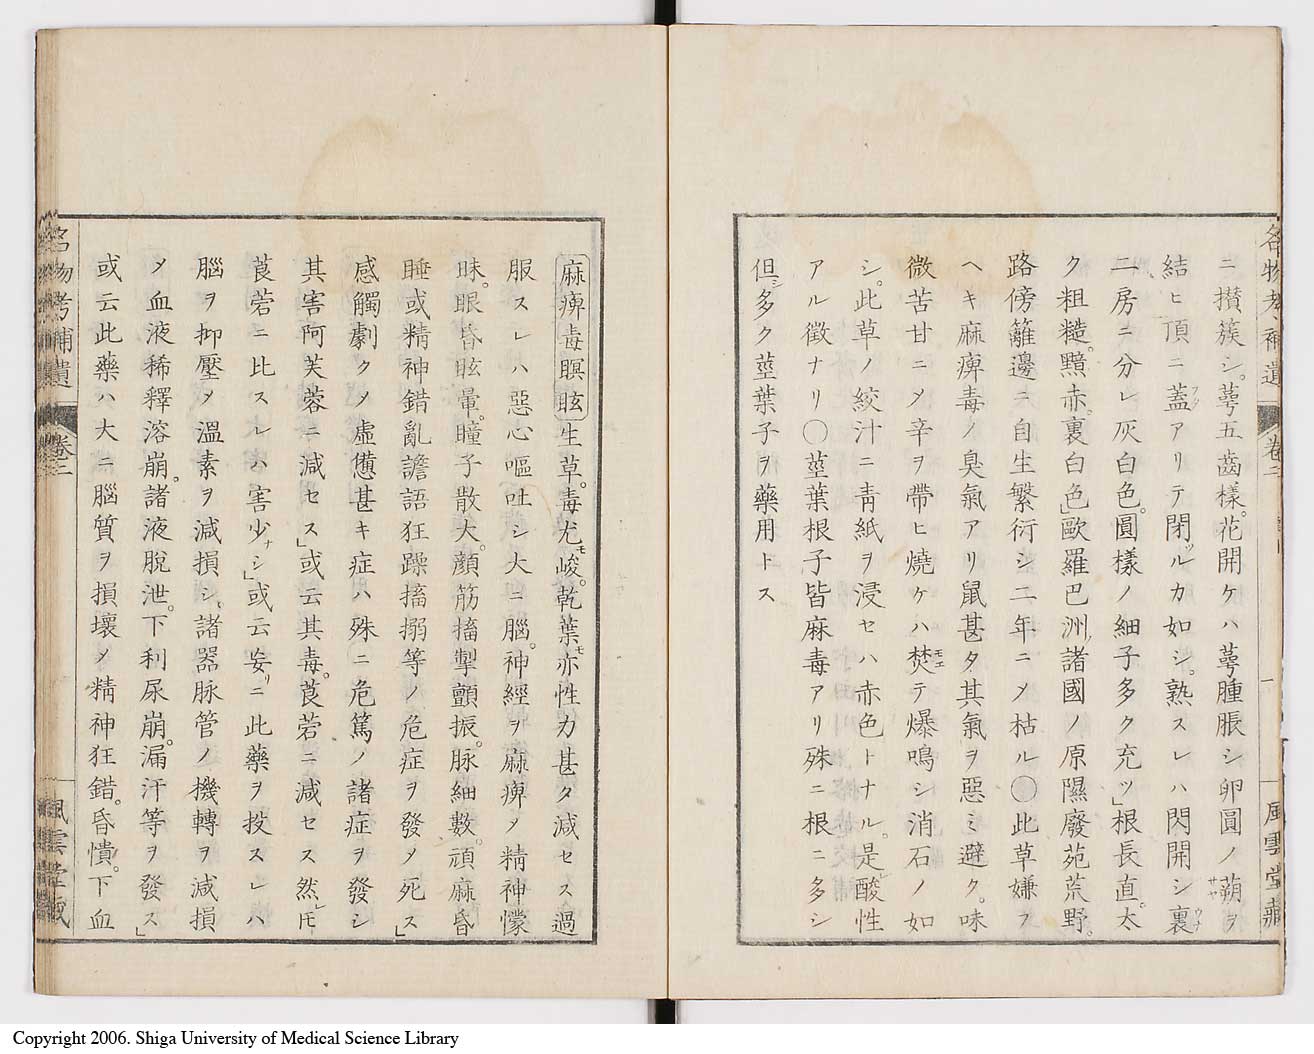 名物考補遺 卷二 風雲堂藏
ニ攅簇シ。萼五齒樣。花開ケハ萼腫脹シ卵圓ノ蒴ヲ
結ヒ頂ニ蓋アリテ閉ルカ如シ。熟スレハ閃開シ裏
二房ニ分レ灰白色。圓樣ノ細子多ク充ツ」根長直。太
ク粗糙。黯赤。裏白色」歐羅巴洲諸國ノ原隰廢苑荒野。
路傍籬邊ニ自生繁衍シ二年ニメ枯ル〇此草嫌フ
ヘキ麻痺毒ノ臭氣アリ鼠甚タ其氣ヲ惡ミ避ク。味
微苦甘ニメ辛ヲ帶ヒ燒ケハ焚テ爆鳴シ消石ノ如
シ。此草ノ絞汁ニ靑紙ヲ浸セハ赤色トナル。是酸性
アル徵ナリ〇莖葉根子皆麻毒アリ殊ニ根ニ多シ
但シ多ク莖葉子ヲ藥用トス
麻痺毒瞑眩 生草。毒尤峻。乾葉亦性力甚タ減セス過
服スレハ惡心嘔吐シ大ニ腦。神經ヲ麻痺メ精神懞
昧。眼昏眩暈。瞳子散大。顔筋搐掣顫振。脉細數。頑麻昏
睡或精神錯亂譫語狂躁搐搦等ノ危症ヲ發メ死ス」
感觸劇クメ虛憊甚キ症ハ殊ニ危篤ノ諸症ヲ發シ
其害阿芙蓉ニ減セス」或云其毒。莨菪ニ減セス然レ𪜈
莨菪ニ比スレハ害少シ」或云妄ニ此藥ヲ投スレハ
腦ヲ抑壓メ溫素ヲ減損シ諸器脉管ノ機轉ヲ減損
メ血液稀釋溶崩。諸液脫泄。下利尿崩。漏汗等ヲ發ス」
或云此藥ハ大ニ腦質ヲ損壞メ精神狂錯。昏憒。下血
名物考補遺 卷二 風雲堂藏
Copyright 2006. Shiga University of Medical Science Library